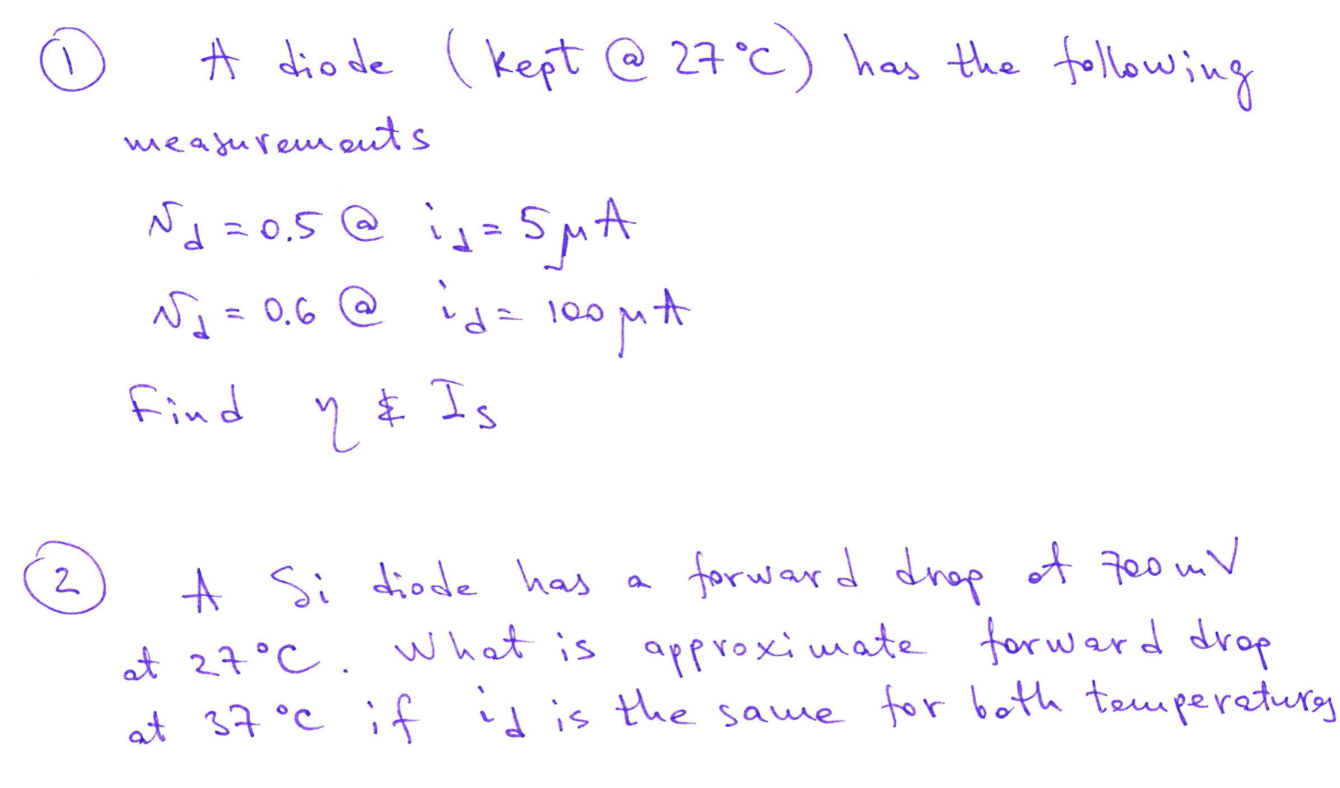 ① A diode (kept @ 27°C) has the following
measurements
v_d = 0.5 @ i_d = 5 μA
v_d = 0.6 @ i_d = 100 μA
Find η & I_s
② A Si diode has a forward drop of 700 mV
at 27°C. What is approximate forward drop
at 37°C if i_d is the same for both temperatures